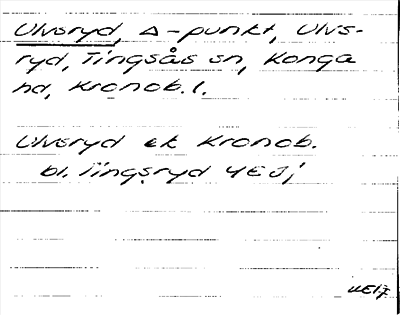 Ulvsryd, △-punkt, Ulvs-
ryd, Tingsås sn, Konga
hd, Kronob. l.
Ulvsryd ek Kronob.
bl. Tingsryd 4E3j